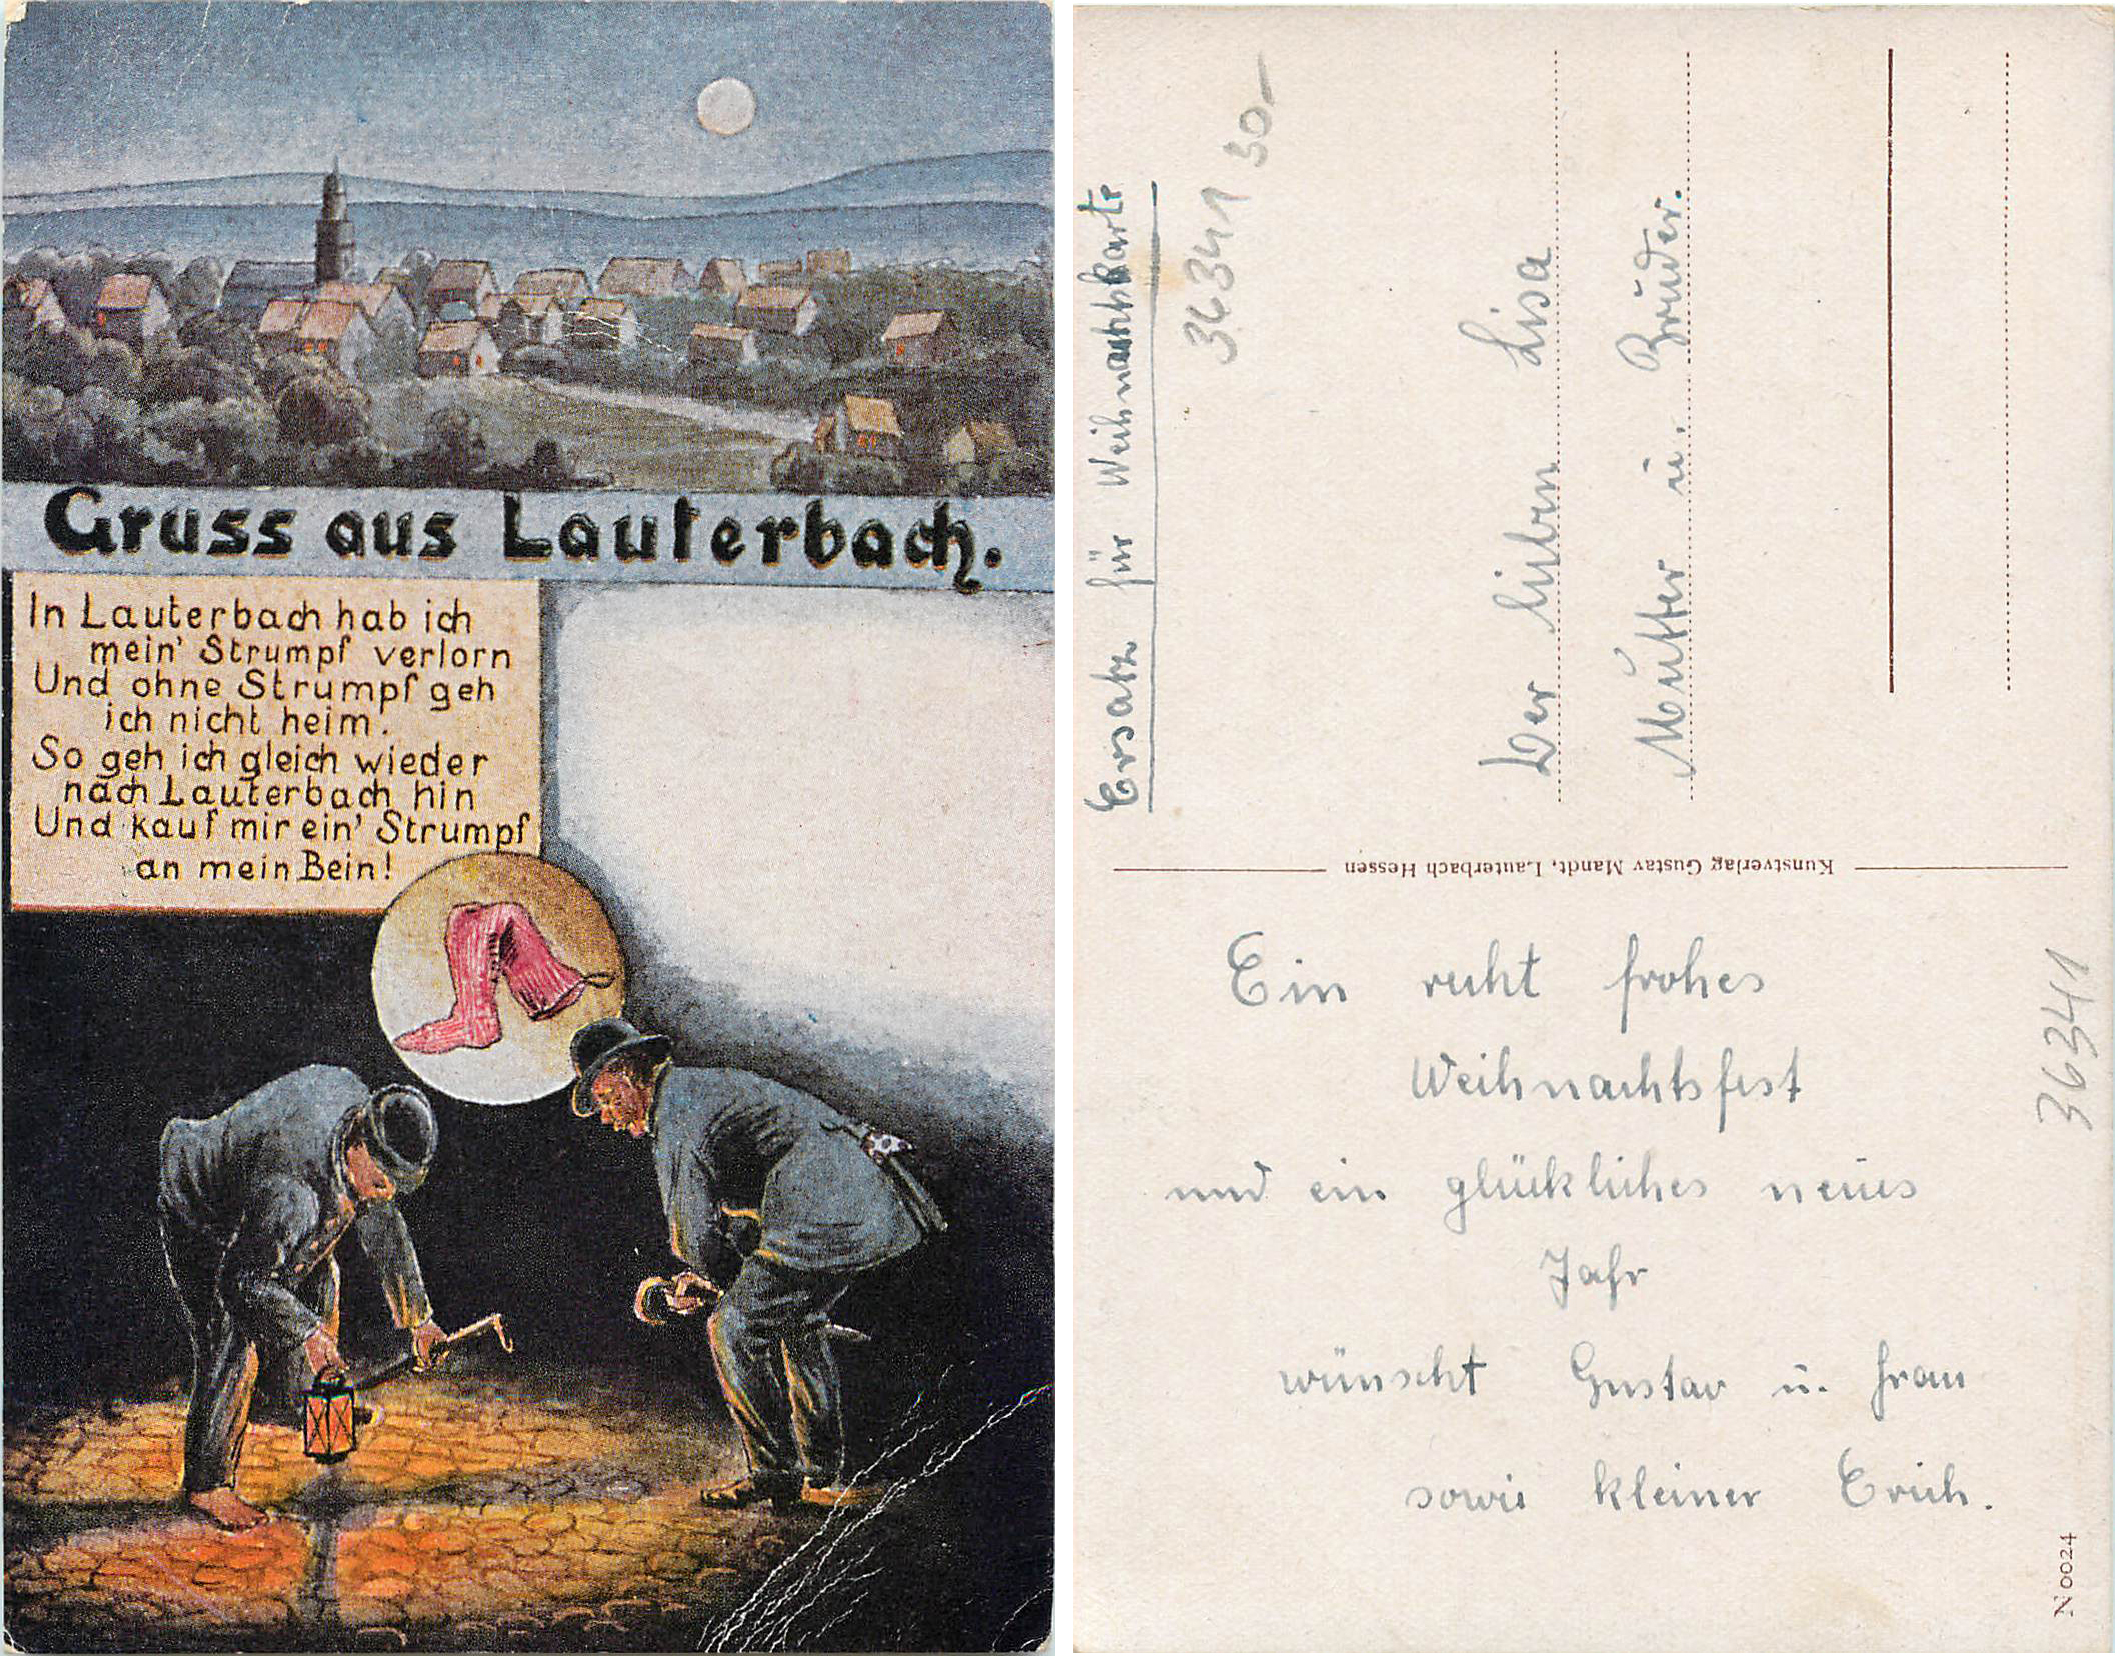 Gruss aus Lauterbach.
In Lauterbach hab ich
mein' Strumpf verlorn
Und ohne Strumpf geh
ich nicht heim.
So geh ich gleich wieder
nach Lauterbach hin
Und kauf mir ein' Strumpf
an mein Bein!
Ersatz für Weihnachtskarte
36341 30-
Der lieben Lisa
Mutter u. Bruder.
Kunstverlag Gustav Mandt, Lauterbach Hessen
Ein recht frohes
Weihnachtsfest
und ein glückliches neues
Jahr
wünscht Gustav u. Frau
sowie kleiner Erich.
36341
N 0024